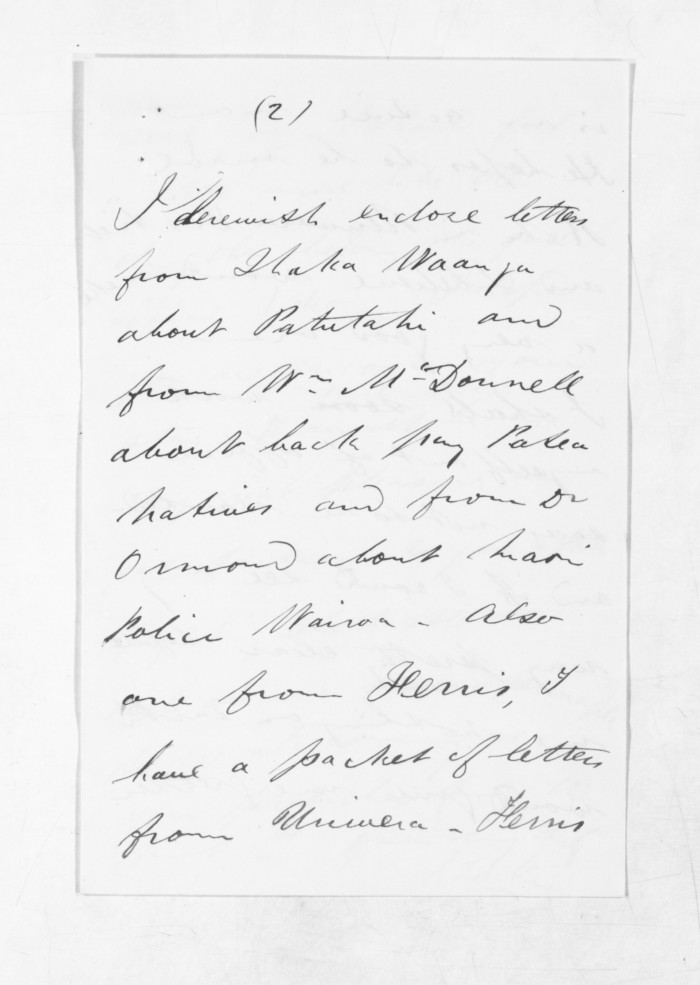 (2)
I herewith enclose letters
from Ihaka Waanga
about Patutahi and
from Wm McDonnell
about back pay Patea
Natives and from Dr
Ormond about Maori
Police Wairoa - Also
one from Ferris, I
have a packet of letters
from Uriwera - Ferris